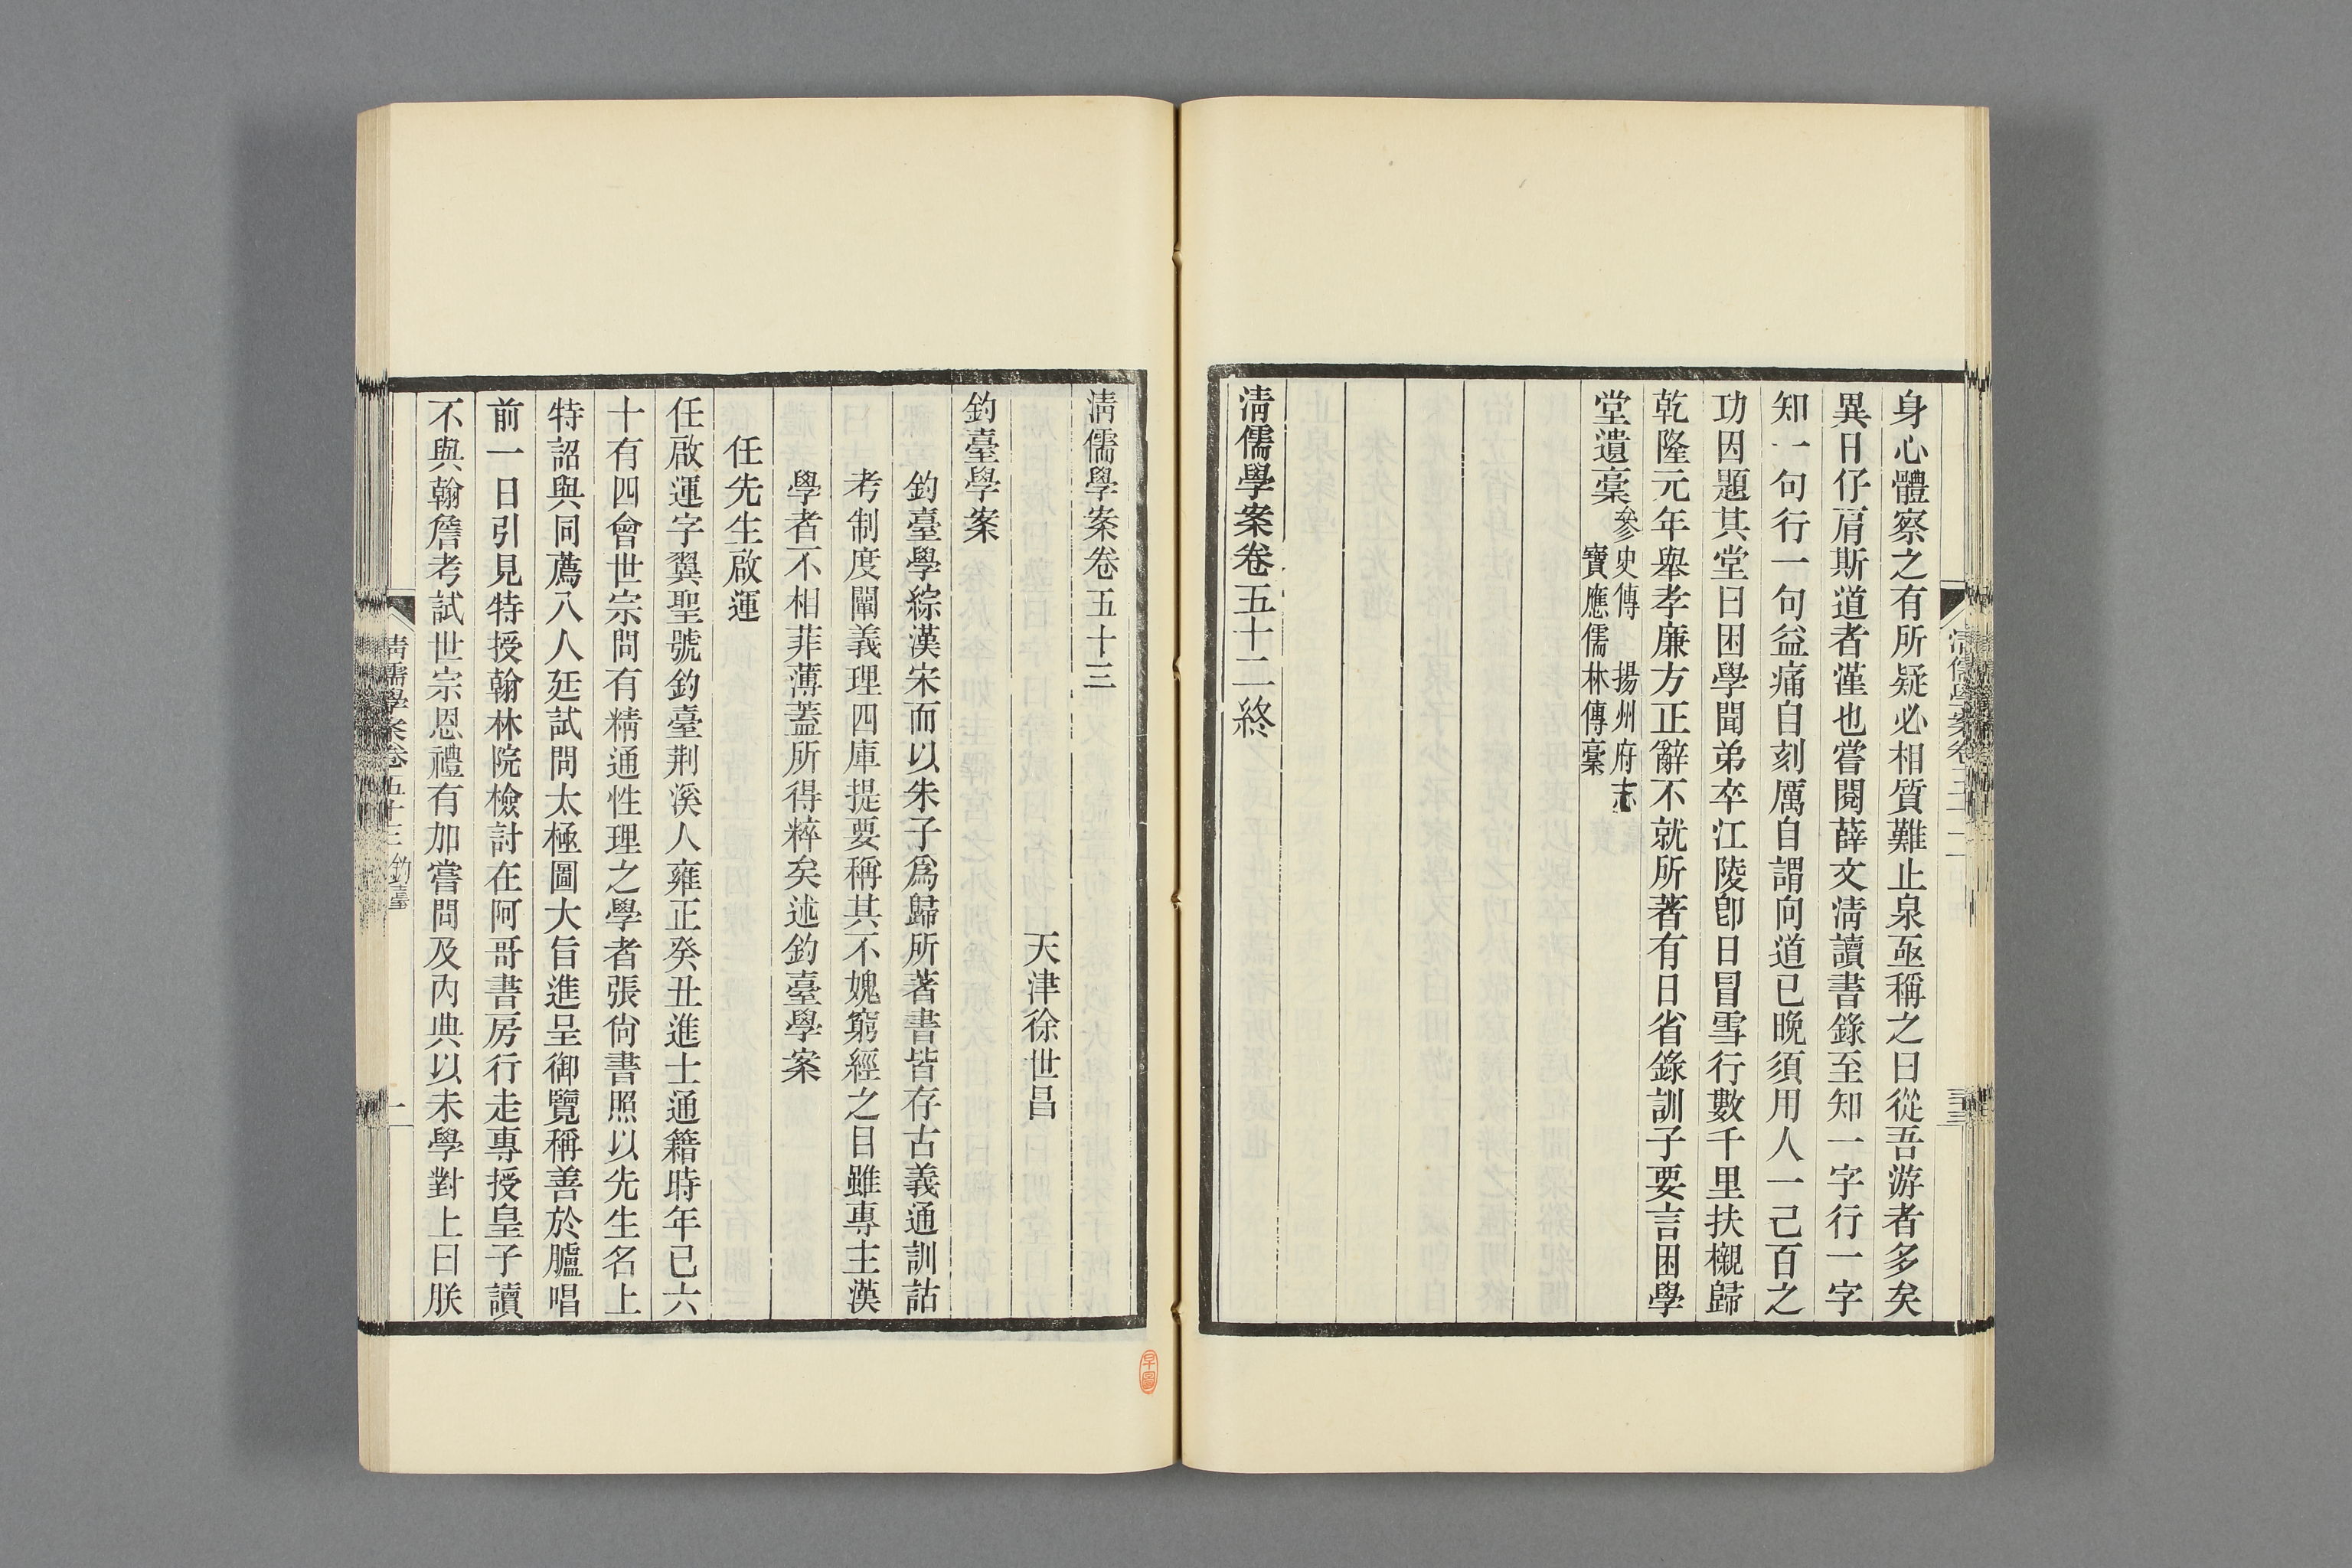 身心體察之有所疑必相質難止泉亟稱之曰從吾游者多矣
異日仔肩斯道者漌也嘗閱薛文淸讀書錄至知一字行一字
知一句行一句益痛自刻厲自謂向道已晚須用人一己百之
功因題其堂曰困學聞弟卒江陵卽日冒雪行數千里扶櫬歸
乾隆元年舉孝廉方正辭不就所著有日省錄訓子要言困學
堂遺稾參史傳 揚州府志
寶應儒林傳稾
淸儒學案卷五十二終
淸儒學案卷五十三
天津徐世昌
釣臺學案
釣臺學綜漢宋而以朱子爲歸所著書皆存古義通訓詁
考制度闡義理四庫提要稱其不媿窮經之目雖專主漢
學者不相菲薄蓋所得粹矣述釣臺學案
任先生啟運
任啟運字翼聖號釣臺荆溪人雍正癸丑進士通籍時年已六
十有四會世宗問有精通性理之學者張尙書照以先生名上
特詔與同薦八人廷試問太極圖大旨進呈御覽稱善於臚唱
前一日引見特授翰林院檢討在阿哥書房行走專授皇子讀
不與翰詹考試世宗恩禮有加嘗問及內典以未學對上曰朕
淸儒學案卷五十三 釣臺
一